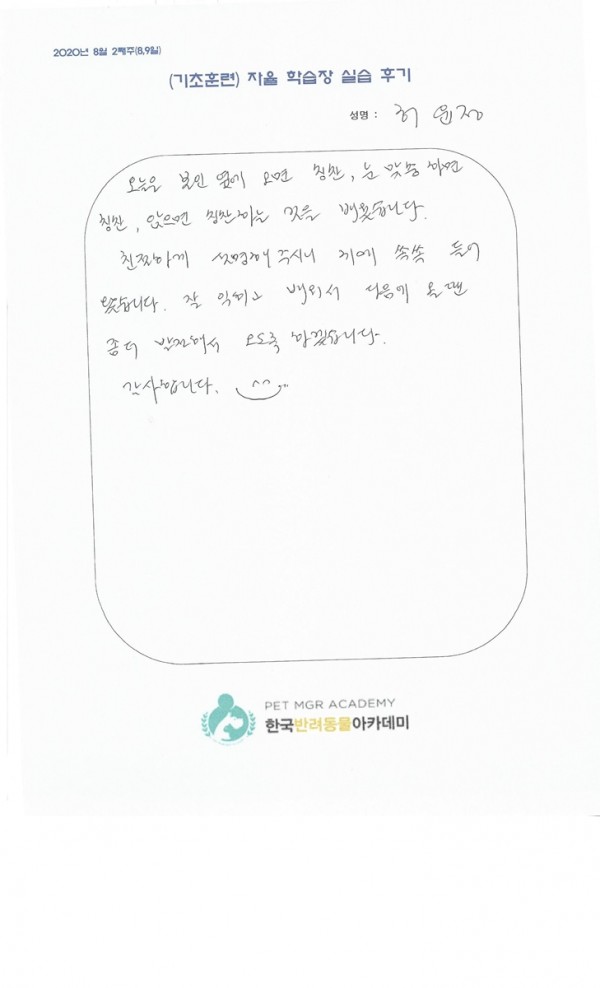 2020년 8월 2째주(8,9일)
(기초훈련) 자율 학습장 실습 후기
성명 : 허 윤정
오늘은 본인 옆에 오면 칭찬, 눈 맞춤 하면
칭찬, 앉으면 칭찬하는 것을 배웠습니다.
친절하게 설명해 주시니 귀에 쏙쏙 들어
왔습니다. 잘 익히고 배워서 다음에 올땐
좀더 발전해서 오도록 하겠습니다.
감사합니다. ^^
PET MGR ACADEMY
한국반려동물아카데미